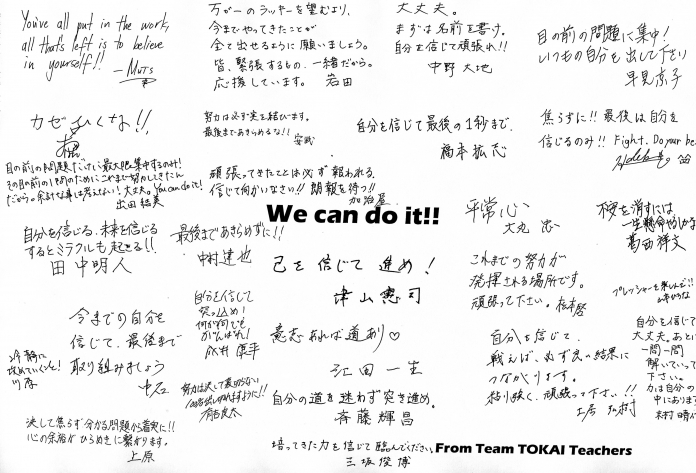 You've all put in the work,
all that's left is to believe
in yourself!!
万が一のラッキーを望むより、
今までやってきたことが
全て出せるように願いましょう。
皆、緊張するもの、一緒だから。
応援しています。 岩田
大丈夫。
まずは名前を書け。
自分を信じて頑張れ!!
中野 大地
目の前の問題に集中!
いつもの自分を出して下さい
早見京子
カゼひくな!!
努力は必ず実を結びます。
最後まであきらめるな!!
自分を信じて最後の1秒まで.
橋本拡志
焦らずに!! 最後は自分を
信じるのみ!! Fight. Do your be
目の前の問題だけに最大限集中するのみ!
その目の前の1問のためにこれまで努力してきたん
だから。余計な事は考えない! 大丈夫。You can do it!
出田 結美
頑張ってきたことは必ず報われる。
信じて向かいなさい!! 朗報を待つ!!
加治屋
We can do it!!
平常心
大丸 忠
夢を消すには
一生懸命やるしかな
葛西祥文
自分を信じる、未来を信じる
するとミラクルも起きる!!
田中明人
最後まであきらめずに!!
中村達也
己を信じて進め!
津山憲司
これまでの努力が
発揮される場所です。
頑張って下さい。
プレッシャーを楽しんで!!
今までの自分を
信じて、最後まで
取り組みましょう
冷静に
攻めていくんだ!
自分を信じて
突っ込め!
何が何でも
がんばれ!
意志あれば道あり♡
江田一生
自分を信じて、
戦えば、必ず良の結果に
つながります。
粘り強く、頑張って下さい!!
土居 弘樹
自分を信じて
大丈夫。あとに
一問一問
解いていって
下さい。
力は自分の
中にあります
村田晴
努力は決して裏切らない
有吉亮太
自分の道を迷わず突き進め。
斉藤輝昌
決して焦らず分かる問題から着実に!!
心の余裕がひらめきに繋がります。
上原
培ってきた力を信じて臨んでください
三坂俊博
From Team TOKAI Teachers